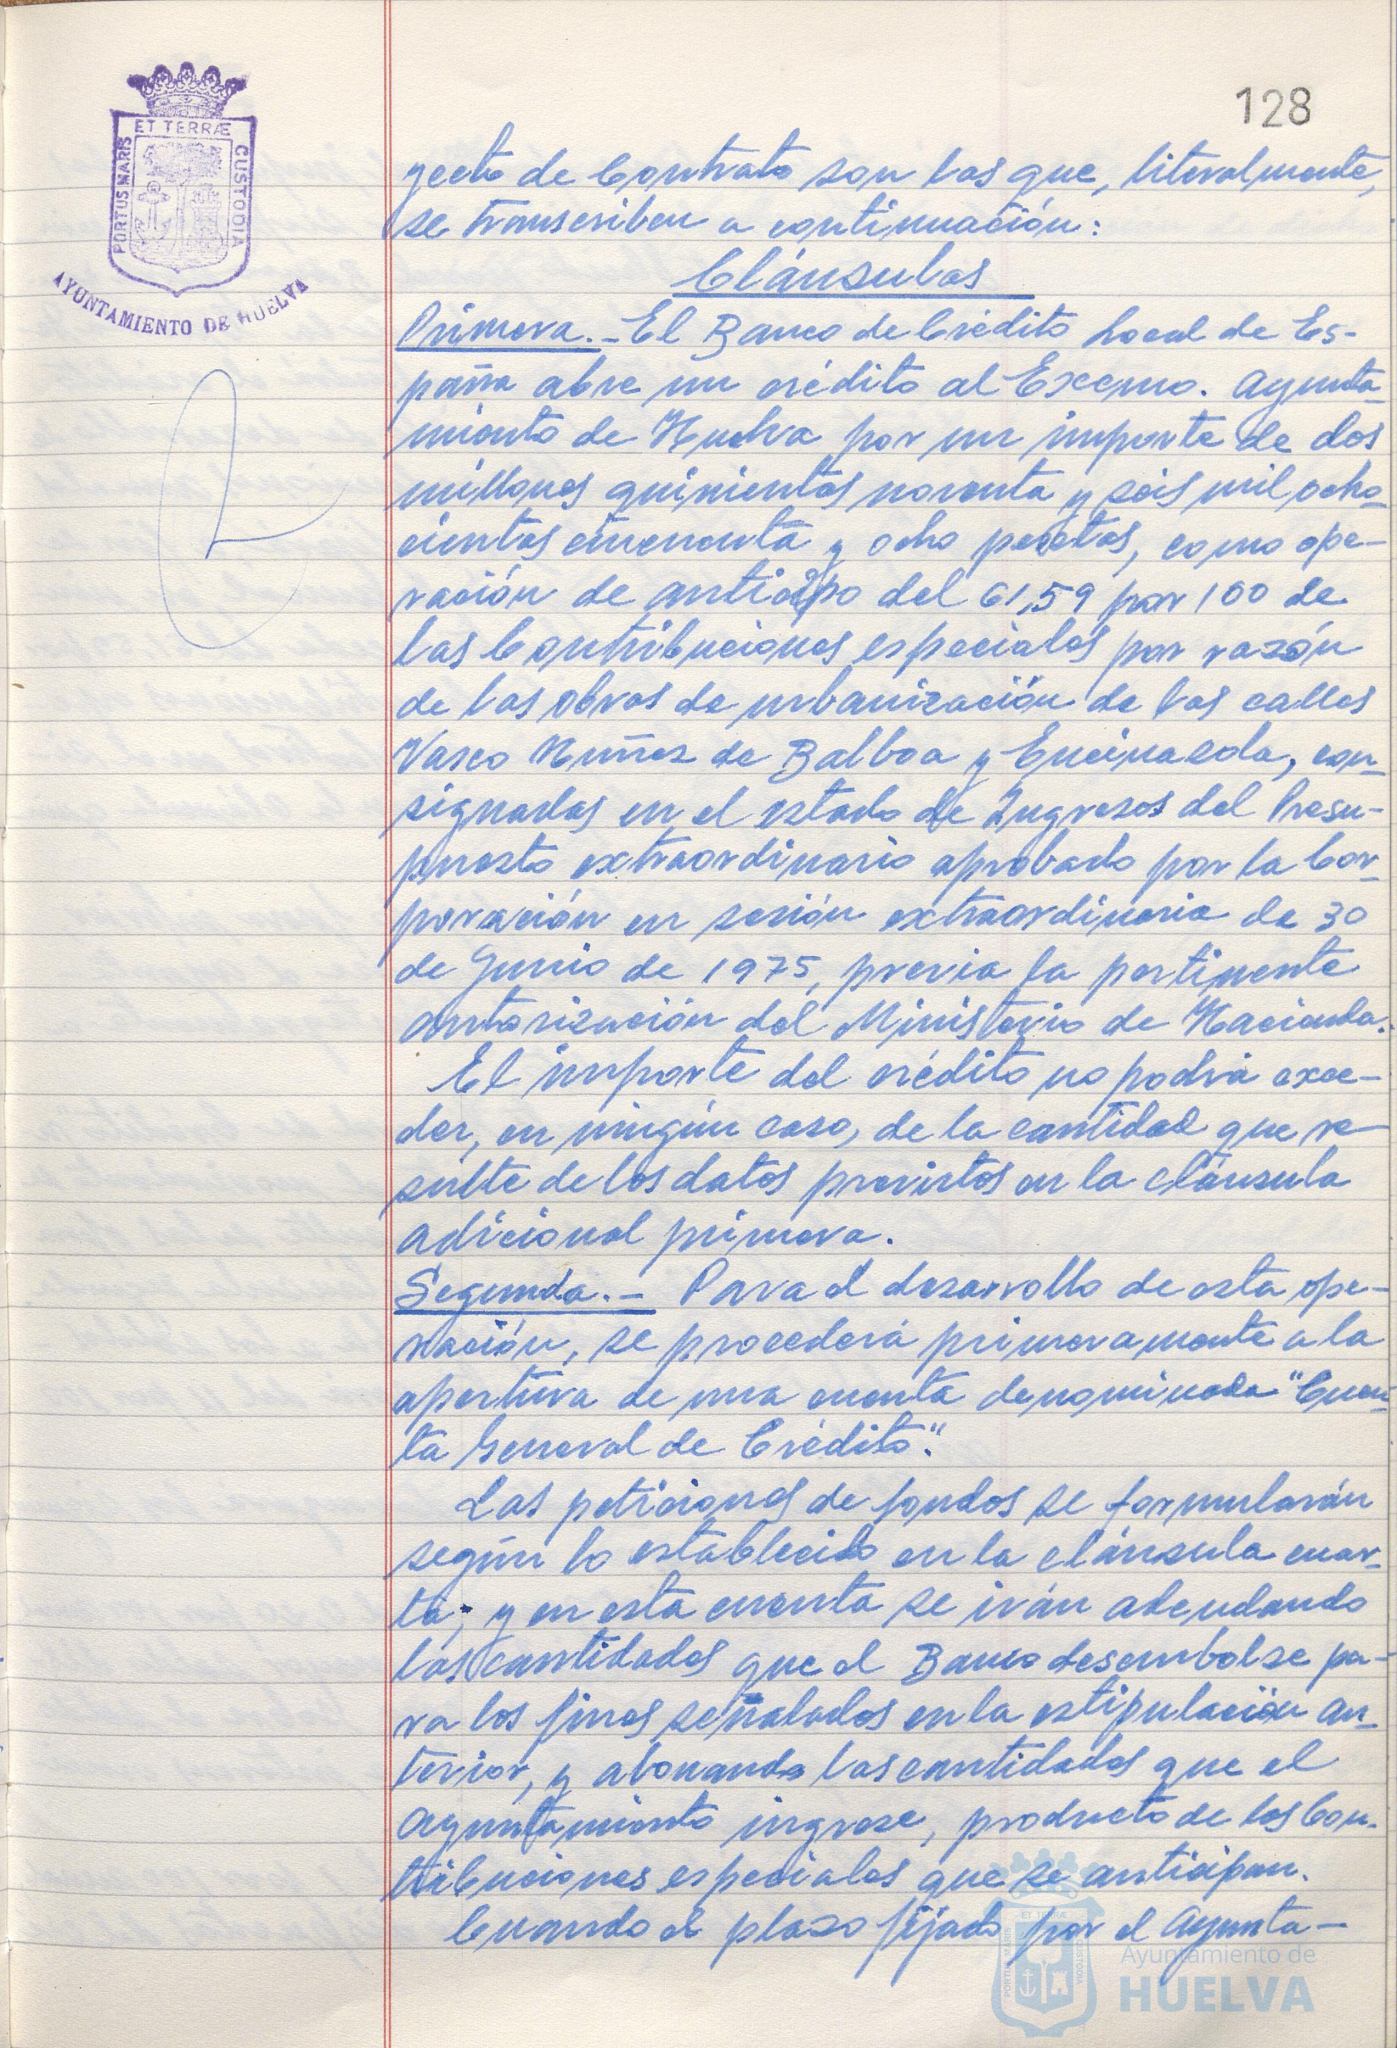 128
ET TERRÆ
PORTUS MARIS
CUSTODIA
AYUNTAMIENTO DE HUELVA
yecto de Contrato son las que, literalmente,
se transcriben a continuación:
Cláusulas
Primera.- El Banco de Crédito Local de Es-
paña abre un crédito al Excemo. Ayunta-
miento de Huelva por un importe de dos
millones quinientas noventa y seis mil ocho-
cientas cincuenta y ocho pesetas, como ope-
ración de anticipo del 61,59 por 100 de
las Contribuciones especiales por razón
de las obras de urbanización de las calles
Vasco Nuñez de Balboa y Encinasola, con-
signadas en el estado de Ingresos del Presu-
puesto extraordinario aprobado por la Cor-
poración en sesión extraordinaria de 30
de Junio de 1975, previa la pertinente
autorización del Ministerio de Hacienda.
El importe del crédito no podrá exce-
der, en ningún caso, de la cantidad que re-
sulte de los datos previstos en la cláusula
adicional primera.
Segunda.- Para el desarrollo de esta ope-
ración, se procederá primeramente a la
apertura de una cuenta denominada "Cuen-
ta General de Crédito".
Las peticiones de fondos se formularán
según lo establecido en la cláusula cuar-
ta; y en esta cuenta se irán adeudando
las cantidades que el Banco desembolse pa-
ra los fines señalados en la estipulación an-
terior, y abonando las cantidades que el
Ayuntamiento ingrese, producto de las Con-
tribuciones especiales que se anticipan.
Cuando el plazo fijado por el Ayunta-
ET TERRÆ
PORTUS MARIS
CUSTODIA
Ayuntamiento de
HUELVA